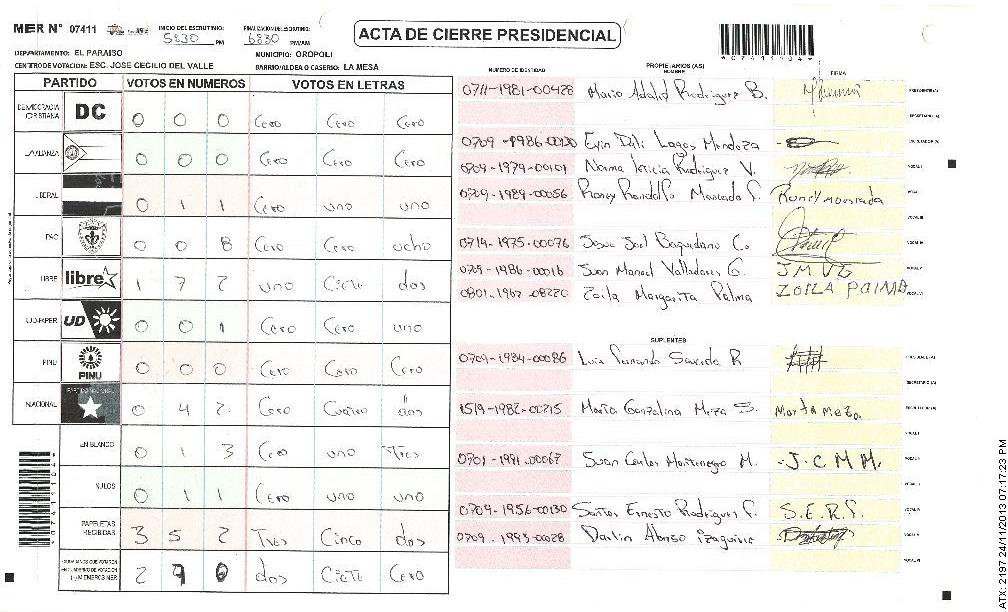 MER N° 07411 INICIO DEL ESCRUTINIO: 5:30 PM FINALIZACION DEL ESCRUTINIO: 6:30 PM/AM
ACTA DE CIERRE PRESIDENCIAL
*07411104*
DEPARTAMENTO: EL PARAISO MUNICIPIO: OROPOLI
CENTRO DE VOTACION: ESC. JOSE CECILIO DEL VALLE BARRIO/ALDEA O CASERIO: LA MESA
PARTIDO VOTOS EN NUMEROS VOTOS EN LETRAS
DEMOCRACIA CRISTIANA DC 0 0 0 Cero Cero Cero
LA ALIANZA 0 0 0 Cero Cero Cero
LIBERAL 0 1 1 Cero uno uno
PAC 0 0 8 Cero Cero ocho
LIBRE libre 1 7 2 uno Ciete dos
UD-FAPER UD 0 0 1 Cero Cero uno
PINU PINU 0 0 0 Cero Cero Cero
NACIONAL PARTIDO NACIONAL 0 4 2 Cero Cuatro dos
EN BLANCO 0 1 3 Cero uno Tres
NULOS 0 1 1 Cero uno uno
PAPELETAS RECIBIDAS 3 5 2 Tres Cinco dos
CIUDADANOS QUE VOTARON EN CUADERNO DE VOTACION (+) MIEMBROS MER 2 7 0 dos Ciete Cero
NUMERO DE IDENTIDAD PROPIETARIOS (AS) NOMBRE FIRMA
0711-1981-00428 Mario Adalid Rodriguez B. PRESIDENTE(A)
SECRETARIO (A)
Lagos Mendoza ESCRUTADOR (A)
0709-1979-00101 Norma Leticia Rodriguez V. VOCAL I
0709-1989-00056 Roney Randolfo Moncada Roneymoncada
VOCAL III
0714-1975-00076 Josue Joel Baquedano C. VOCAL IV
0705-1986-00016 Juan Manuel Valladares G. JMVG VOCAL V
0801-1967-08220 Zoila Margarita Palma ZOILA PALMA VOCAL VI
SUPLENTES
0709-1984-00086 Luis Fernando Sauceda R PRESIDENTE(A)
SECRETARIO (A)
1519-1982-00215 Marta Gonzalina Meza S. Marta Meza ESCRUTADOR (A)
VOCAL I
0701-1991-00067 Juan Carlos Montenegro M. J.C M M. VOCAL II
0709-1956-00130 Santos Ernesto Rodriguez S.E.R.F. VOCAL IV
0709-1993-00028 Darlin Alonso Izaguirre VOCAL V
VOCAL VI
*07411104*
ATX: 2197 24/11/2013 07:17:23 PM